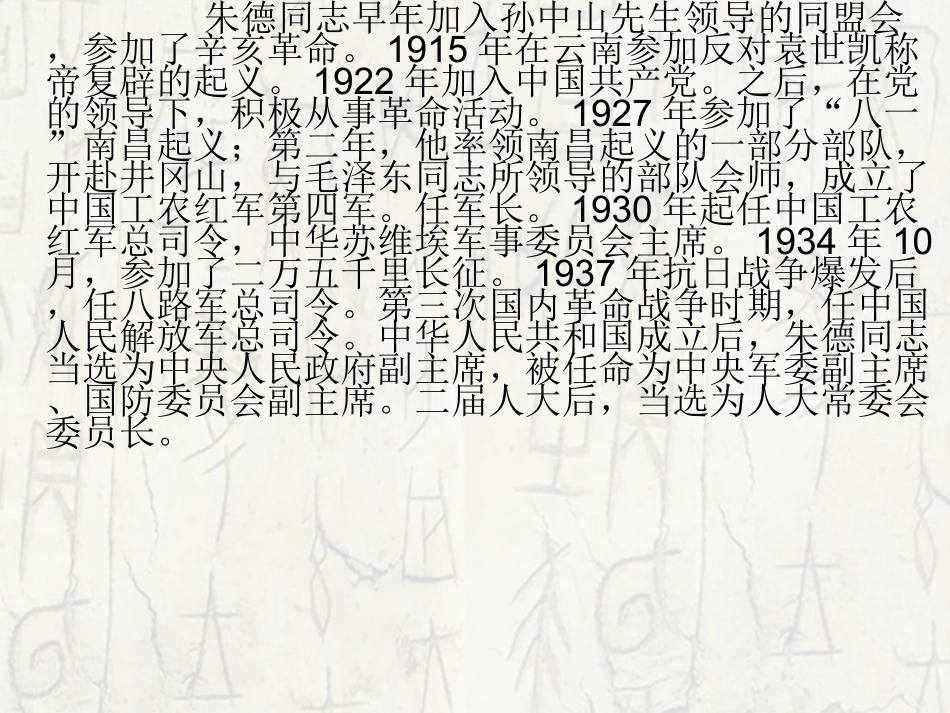 朱德同志早年加入孙中山先生领导的同盟会
，参加了辛亥革命。 1915 年在云南参加反对袁世凯称
帝复辟的起义。 1922 年加入中国共产党。之后，在党
的领导下，积极从事革命活动。 1927 年参加了“八一
”南昌起义；第二年，他率领南昌起义的一部分部队，
开赴井冈山，与毛泽东同志所领导的部队会师，成立了
中国工农红军第四军。任军长。 1930 年起任中国工农
红军总司令，中华苏维埃军事委员会主席。 1934 年 10
月，参加了二万五千里长征。 1937 年抗日战争爆发后
，任八路军总司令。第三次国内革命战争时期，任中国
人民解放军总司令。中华人民共和国成立后，朱德同志
当选为中央人民政府副主席，被任命为中央军委副主席
、国防委员会副主席。二届人大后，当选为人大常委会
委员长。